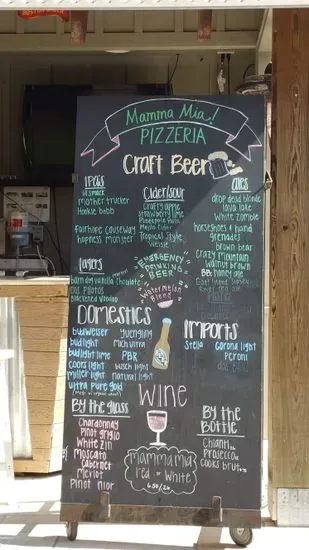 Mamma Mia!
PIZZERIA
Craft Beer
IPAs
lil smack
mother trucker
Hookie bobb
Fairhope causeway
hopness monster
Cider/sour
crafty apple
strawberry lime
Pineapple
Mecha Cider
Tropical Style
Weisse
Ales
drop dead blonde
lava lake
White Zombie
horseshoes & hand
grenades
brown bear
crazy mountain
walnut brown
BB: honey ale
EMERGENCY
DRINKING
BEER
Watermelon
Blend
lagers
barn dry vanilla chocolate
Dos Perros
Blackened voodoo
Domestics
budweiser
bud light
bud light lime
coors light
miller light
ultra pure gold
yuengling
Mich ultra
PBR
busch light
natural light
Imports
Stella
corona light
Peroni
dos equis
WINE
By the glass
Chardonnay
Pinot grigio
White zin
Moscato
Cabernet
Merlot
Pinot noir
Mamma Mia
red or White
6.50/26
By the
Bottle
Chianti
Prosecco
Cooks brut